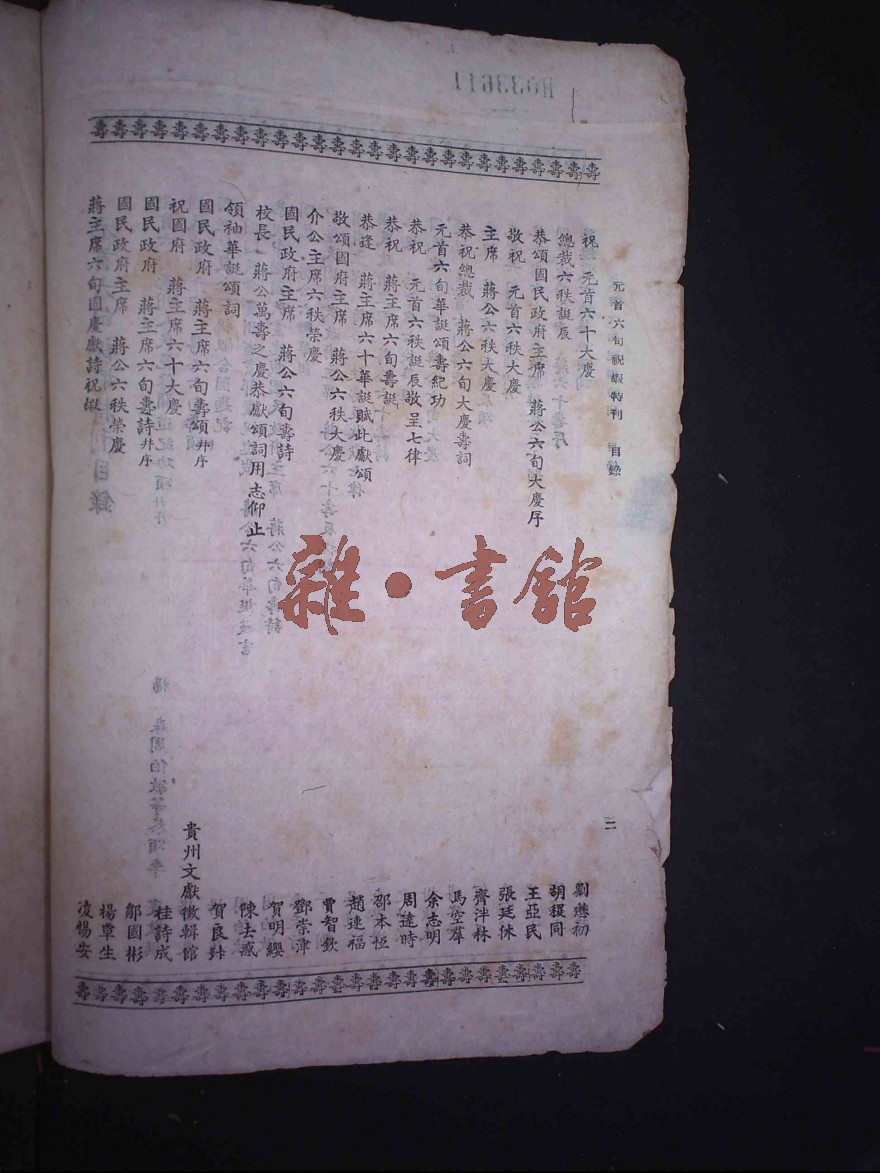 元首六旬祝嘏特刊　目錄
二
祝　元首六十大慶　劉懋初
總裁六秩誕辰　胡稷同
恭頌國民政府主席　蔣公六旬大慶序　王亞民
敬祝　元首六秩大慶　張廷休
主席　蔣公六秩大慶　齊泮林
恭祝總裁　蔣公六旬大慶壽詞　馬空羣
元首六旬華誕頌壽紀功　余志明
恭祝　元首六秩誕辰敬呈七律　周達時
恭祝　蔣主席六旬壽誕　邵本恆
恭逢　蔣主席六十華誕賦此獻頌　趙連福
敬頌國府主席　蔣公六秩大慶　賈智欽
介公主席六秩榮慶　鄧崇津
國民政府主席　蔣公六旬壽詩　賀明纓
校長　蔣公萬壽之慶恭獻頌詞用志仰止　陳去惑
領袖華誕頌詞　賀良
國民政府　蔣主席六旬壽頌幷序　貴州文獻徵輯館
祝國府　蔣主席六十大慶　桂詩成
國民政府　蔣主席六旬壽詩幷序　鄒國彬
國民政府主席　蔣公六秩榮慶　楊覃生
蔣主席六旬國慶獻詩祝嘏　凌惕安
雜·書館